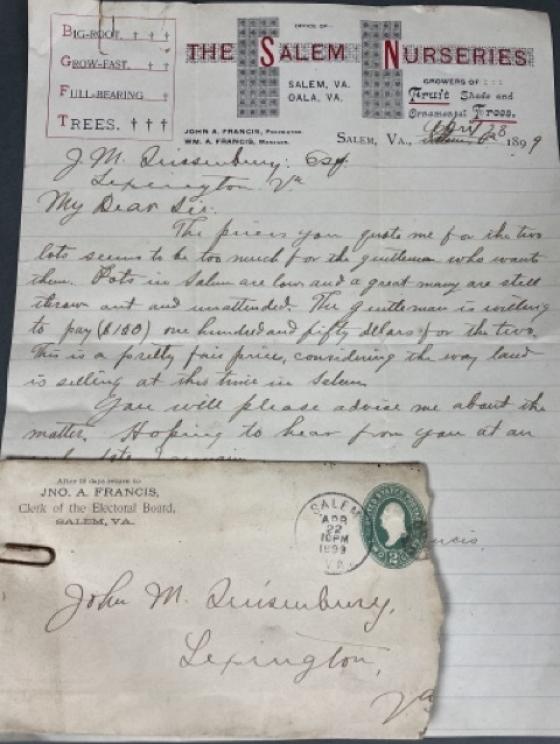 BIG-ROOT. † † †
GROW-FAST. † †
FULL-BEARING †
TREES. † † †
OFFICE OF
THE SALEM NURSERIES
SALEM, VA.
OALA, VA.
GROWERS OF
Fruit Shade and
Ornamental Trees.
JOHN A. FRANCIS, PROPRIETOR
WM. A. FRANCIS, MANAGER.
SALEM, VA., 1899
J. M. Quisenbury, Esq.
Lexington Va
My Dear Sir:
The prices you quote me for the two
lots seems to be too much for the gentleman who wants
them. Lots in Salem are low and a great many are still
thrown out and unattended. The gentleman is willing
to pay ($150) one hundred and fifty dollars for the two.
This is a pretty fair price, considering the way land
is selling at this time in Salem
You will please advise me about the
matter. Hoping to hear from you at an
After 15 days return to
JNO. A. FRANCIS,
Clerk of the Electoral Board,
SALEM, VA.
SALEM
APR
22
10PM
1899
VA.
UNITED STATES POSTAGE
2
John M. Quisenbury,
Lexington,
Va